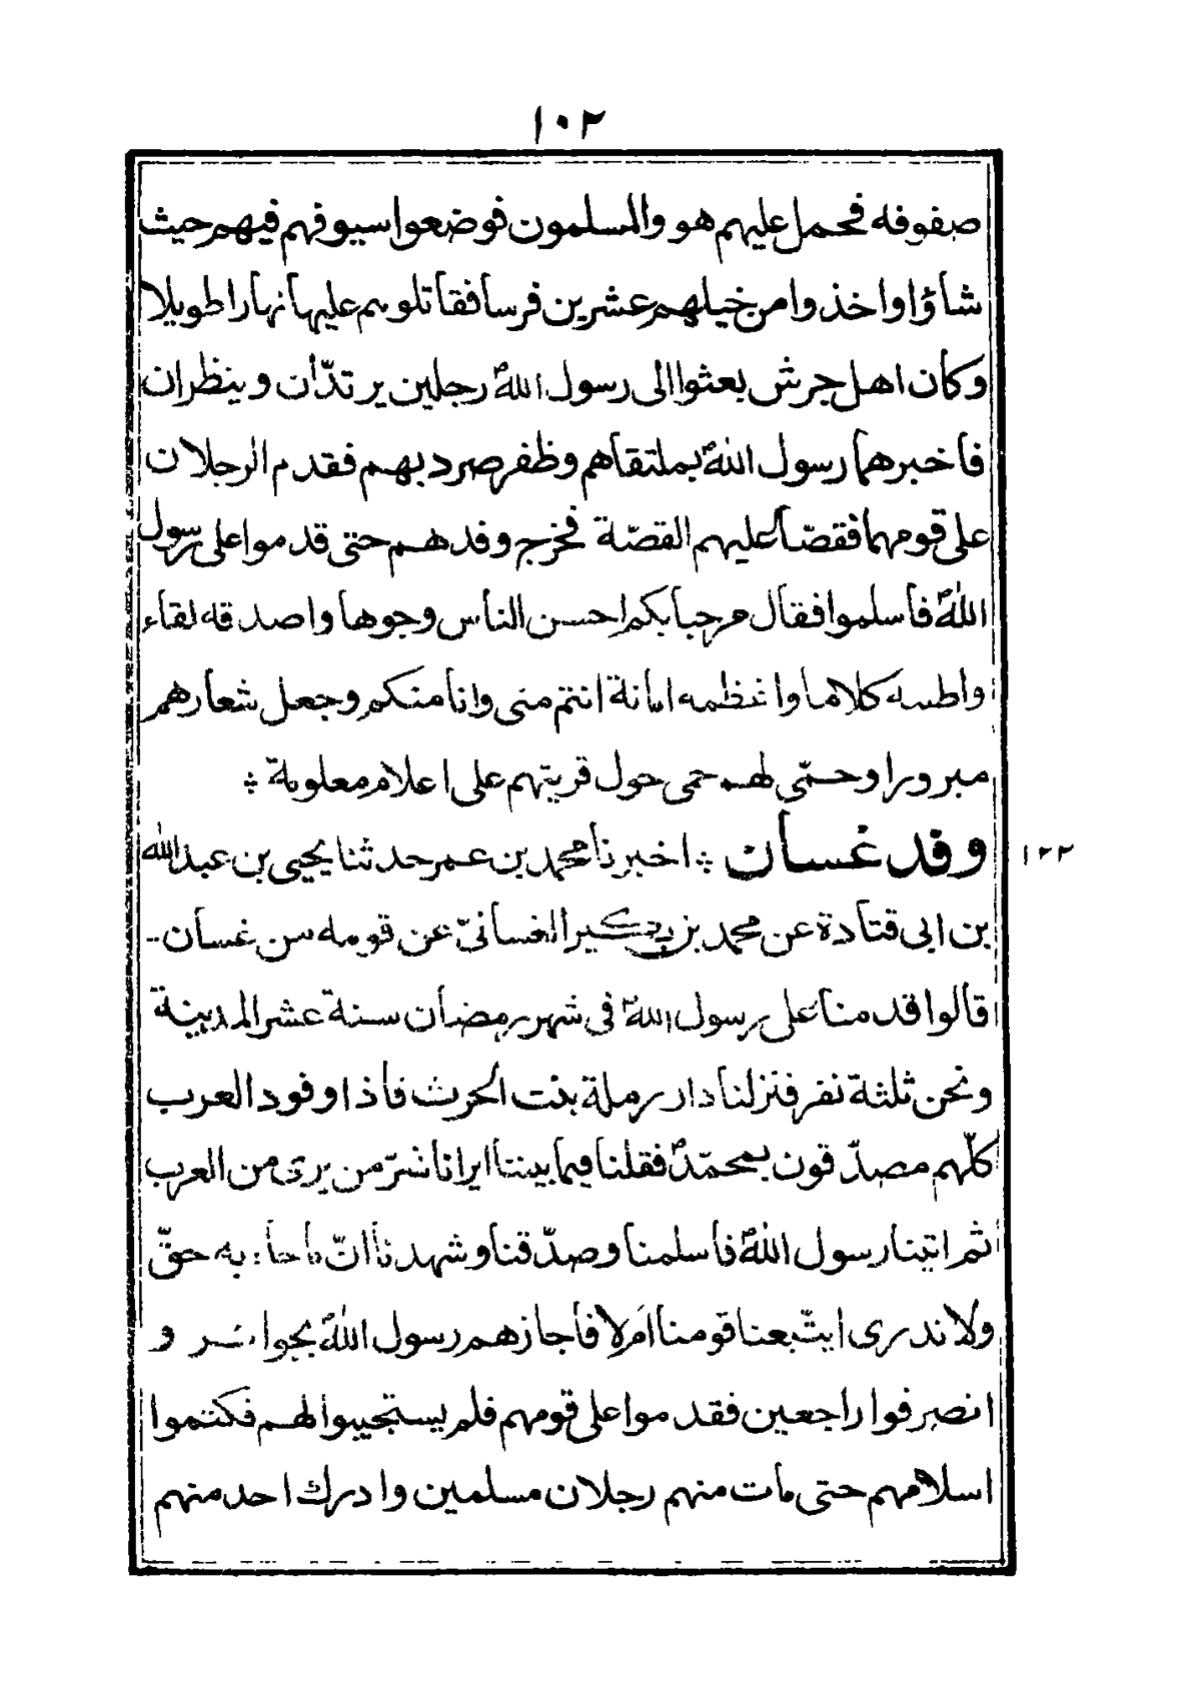 ١٠٢
صفوفه فحمل عليهم هو والمسلمون فوضعوا سيوفهم فيهم حيث
شاؤا واخذوا من خيلهم عشرين فرسا فقاتلوهم عليها نهارا طويلا
وكان اهل جرش بعثوا الى رسول الله رجلين يرتدّان وينظران
فاخبرهما رسول الله بملتقاهم وظفر صرد بهم فقدم الرجلان
على قومهما فقصّا عليهم القصّة فخرج وفدهم حتى قدموا على رسول
الله فاسلموا فقال مرحبا بكم احسن الناس وجوها واصدقه لقاء
واطيبه كلاما واعظمه امانة انتم منى وانا منكم وجعل شعارهم
مبرورا وحمّى لهم حمى حول قريتهم على اعلام معلومة ؞
وفد غسان ؞ اخبرنا محمد بن عمر حدثنا يحيى بن عبد الله
١٢٢
بن ابى قتادة عن محمد بن بكير الغسانىّ عن قومه من غسان
قالوا قدمنا على رسول الله فى شهر رمضان سنة عشر المدينة
ونحن ثلثة نفر فنزلنا دار رملة بنت الحرث فاذا وفود العرب
كلّهم مصدّقون بمحمّد فقلنا فيما بيننا ايرانا شرّ من يرى من العرب
ثم اتينا رسول الله فاسلمنا وصدّقنا وشهدنا انّ ما جاء به حقّ
ولا ندرى ايتّبعنا قومنا ام لا فاجازهم رسول الله بجوائز و
انصرفوا راجعين فقدموا على قومهم فلم يستجيبوا لهم فكتموا
اسلامهم حتى مات منهم رجلان مسلمين وادرك احد منهم